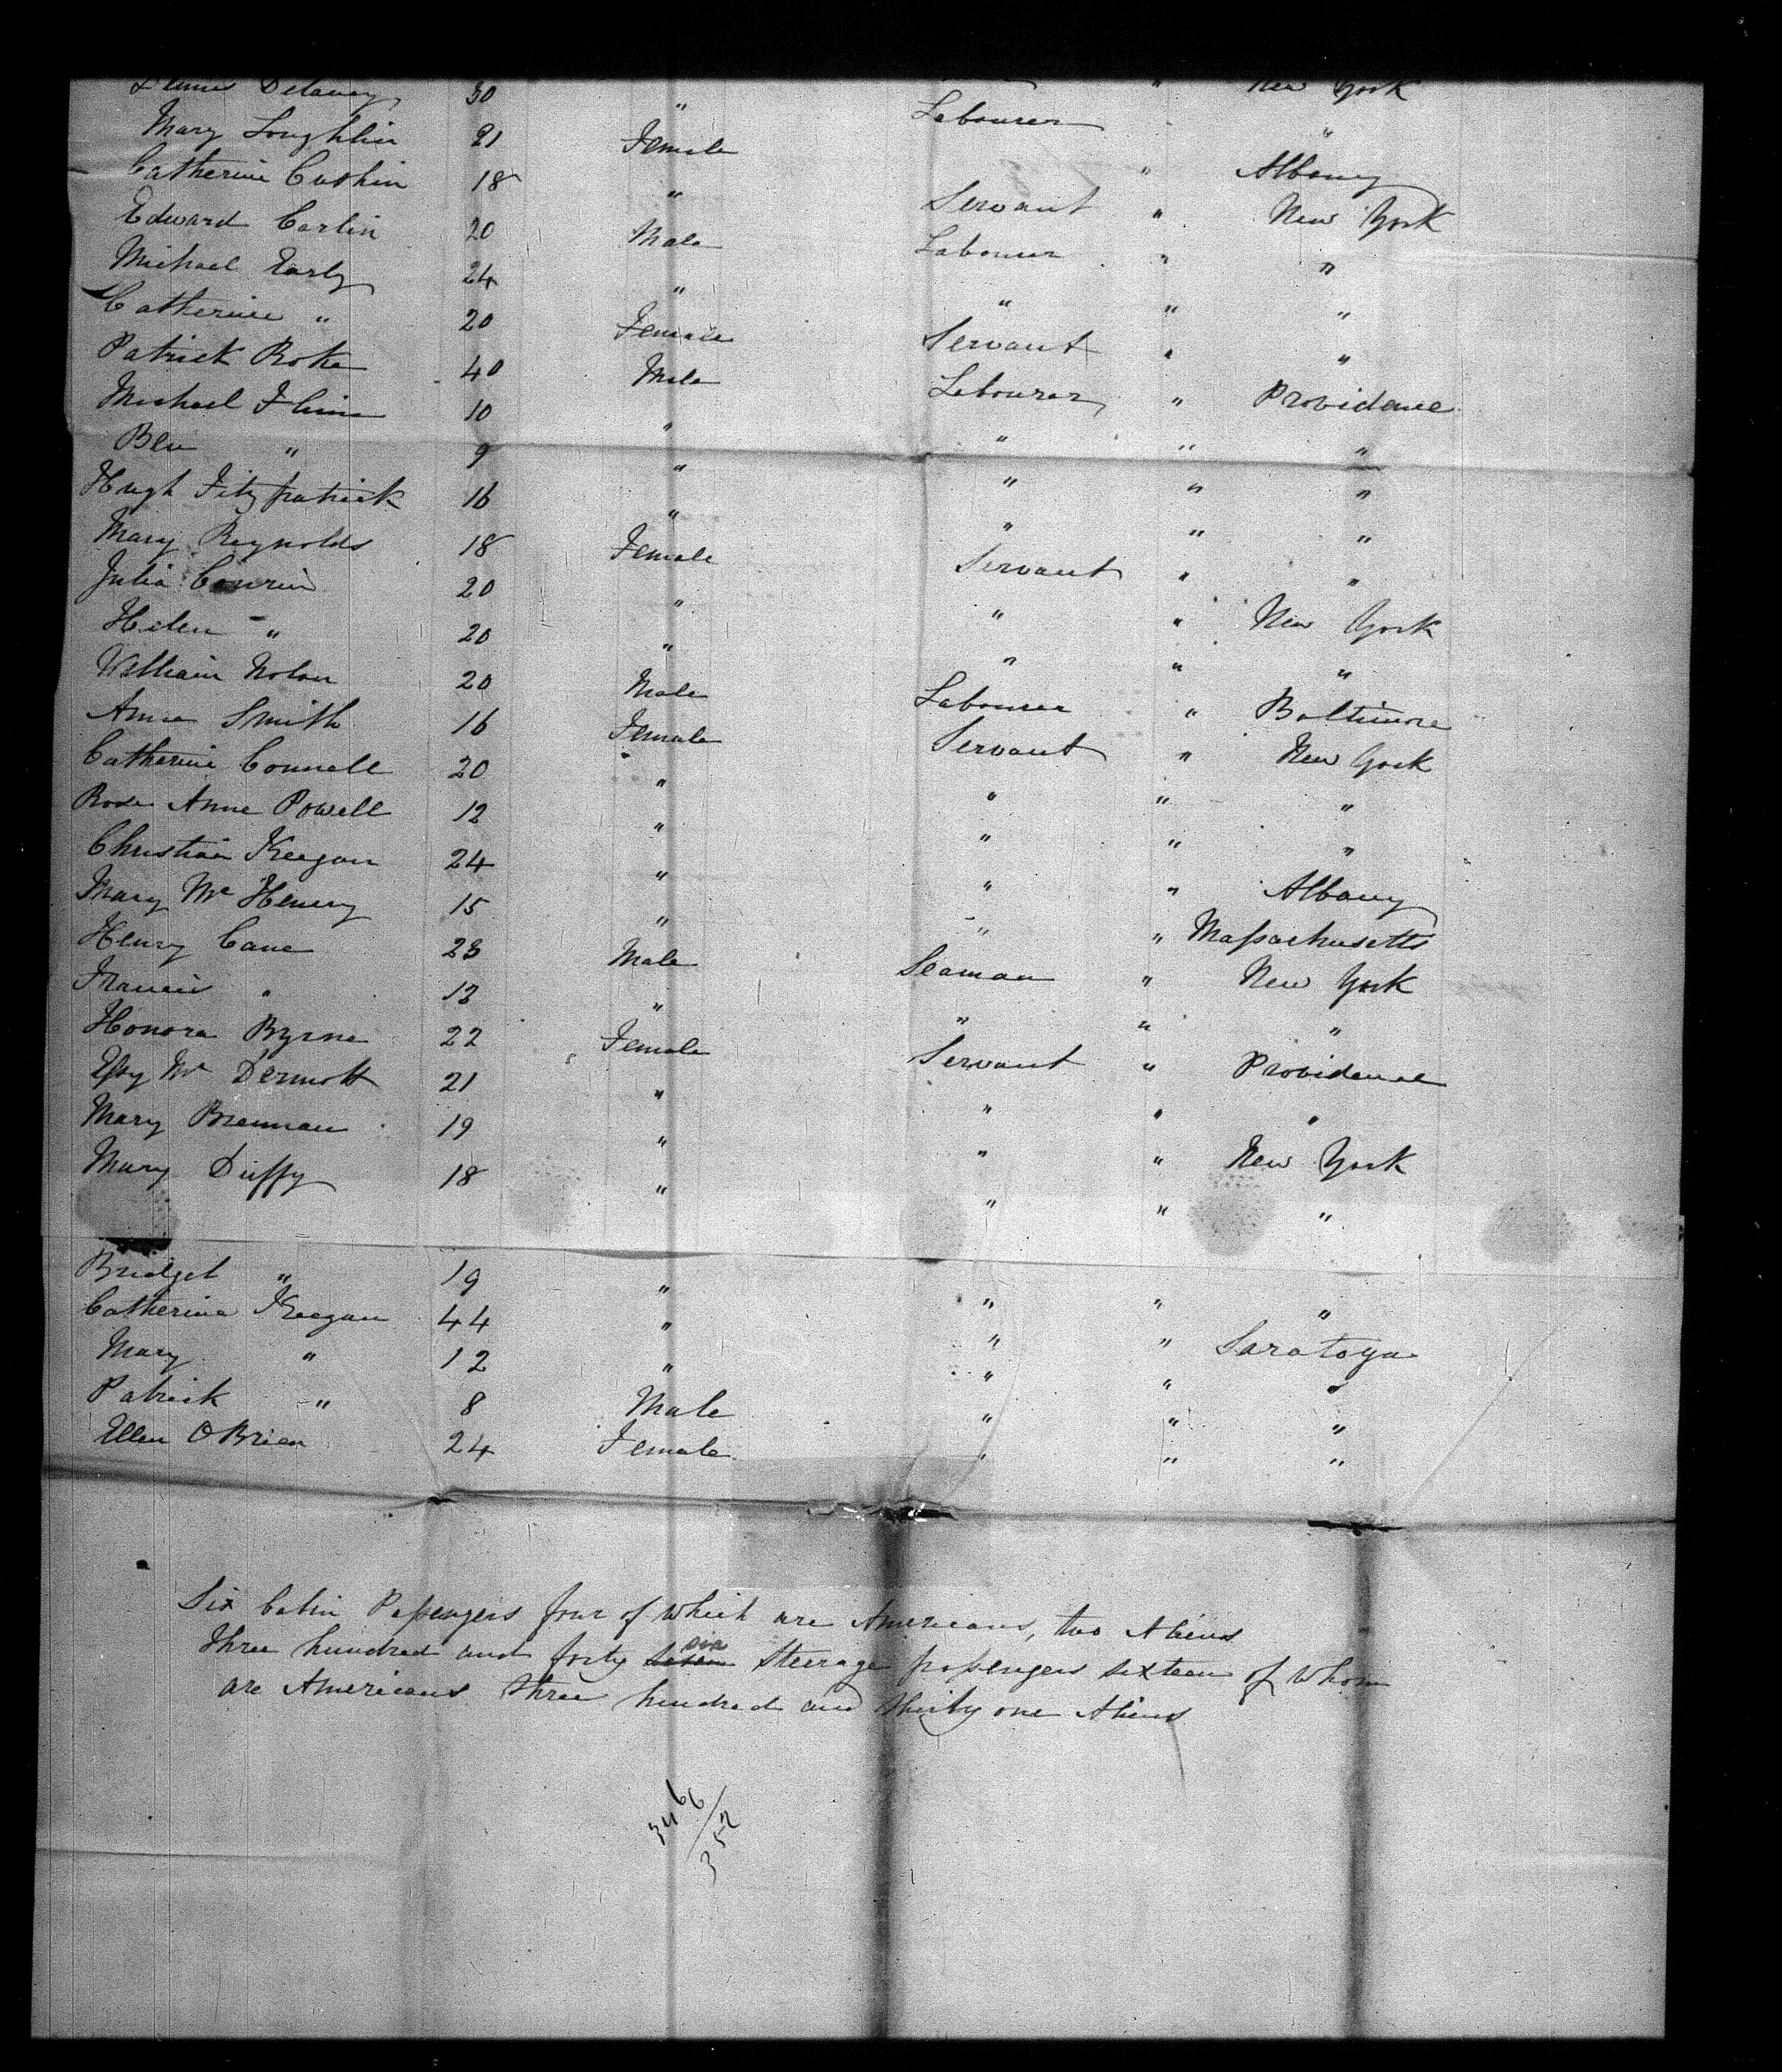 Delaney 30 " New York
Mary Loughlin 21 Female Labourer "
Catherine Cushin 18 " " Albany
Edward Carlin 20 Male Servant " New York
Michael Early 24 " Labourer " "
Catherine " 20 Female " " "
Patrick Roke 40 Male Servant " "
Michael 10 " Labourer " Providence
" 9 " " " "
Hugh Fitzpatrick 16 " " " "
Mary Reynolds 18 Female " " "
Julia 20 " Servant " "
Helen " 20 " " " New York
William Nolan 20 Male " " "
Anne Smith 16 Female Labourer " Baltimore
Catherine Connell 20 " Servant " New York
Rose Anne Powell 12 " " " "
Christian Keegan 24 " " " "
Mary Mc Henery 15 " " " Albany
Henry Cane 23 Male " " Massachusetts
Francis " 13 " Seaman " New York
Honora Byrne 22 Female " " "
Mc Dermott 21 " Servant " Providence
Mary Brennan 19 " " " "
Mary Duffy 18 " " " New York
" " "
Bridget " 19 " " " "
Catherine Keegan 44 " " " Saratoga
Mary " 12 " " " "
Patrick " 8 Male " " "
Ellen O Brien 24 Female " " "
Six Cabin Passengers four of which are Americans, two Aliens
six
Three hundred and forty seven steerage passengers sixteen of whom
are Americans three hundred and thirty one Aliens
346
6
352